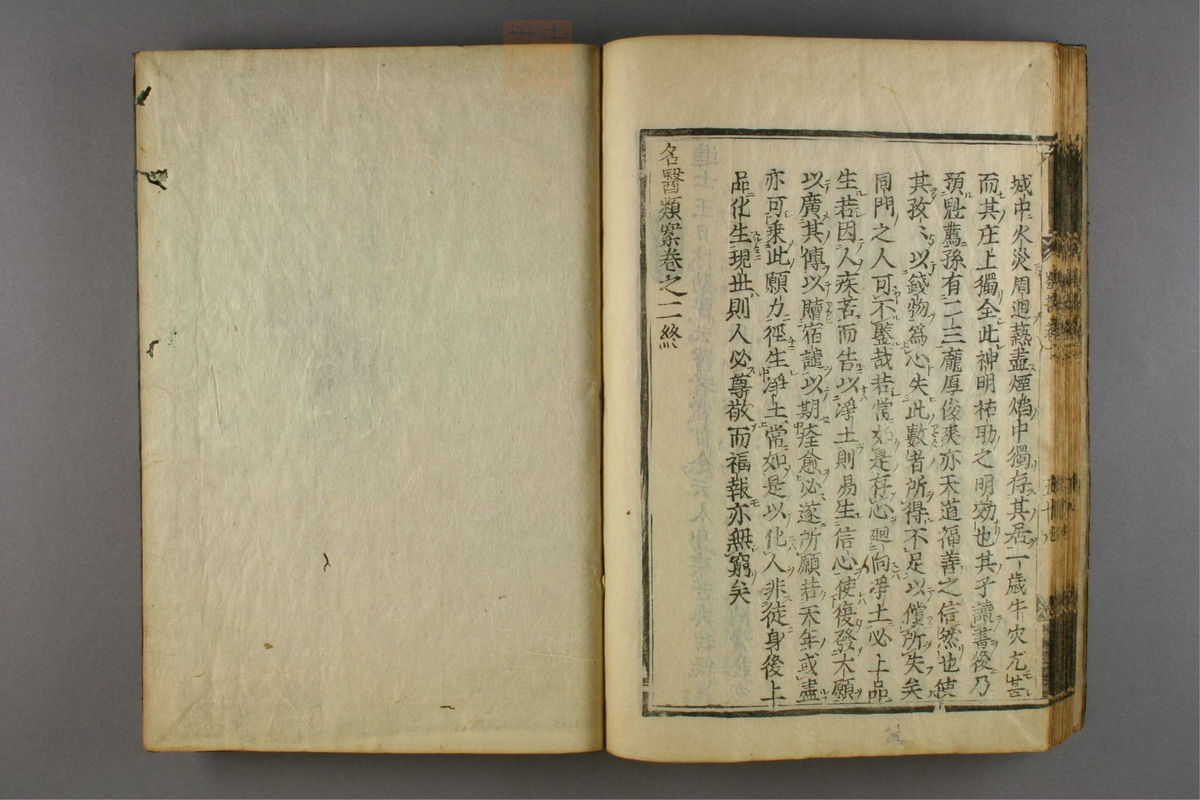 城中火災周迴爇盡煙焰中獨存其居一歳牛灾尤甚
而其庄上獨全此神明祐助之明効也其子讀書後乃
預魁薦孫有二三龐厚俊爽亦天道福善之信然也使
其孜〻以錢物爲心失此數者所得不足以償所失矣
同門之人可不鑒哉若常如是存心廻向淨土必上品
生若因人疾苦而告以淨土則易生信心使復發大願
以廣其傳以贖宿譴以期痊愈必遂所願若天年或盡
亦可乘此願力徑生淨土常如是以化人非徒身後上
品化生現世則人必尊敬而福報亦無窮矣
名醫類案卷之二終